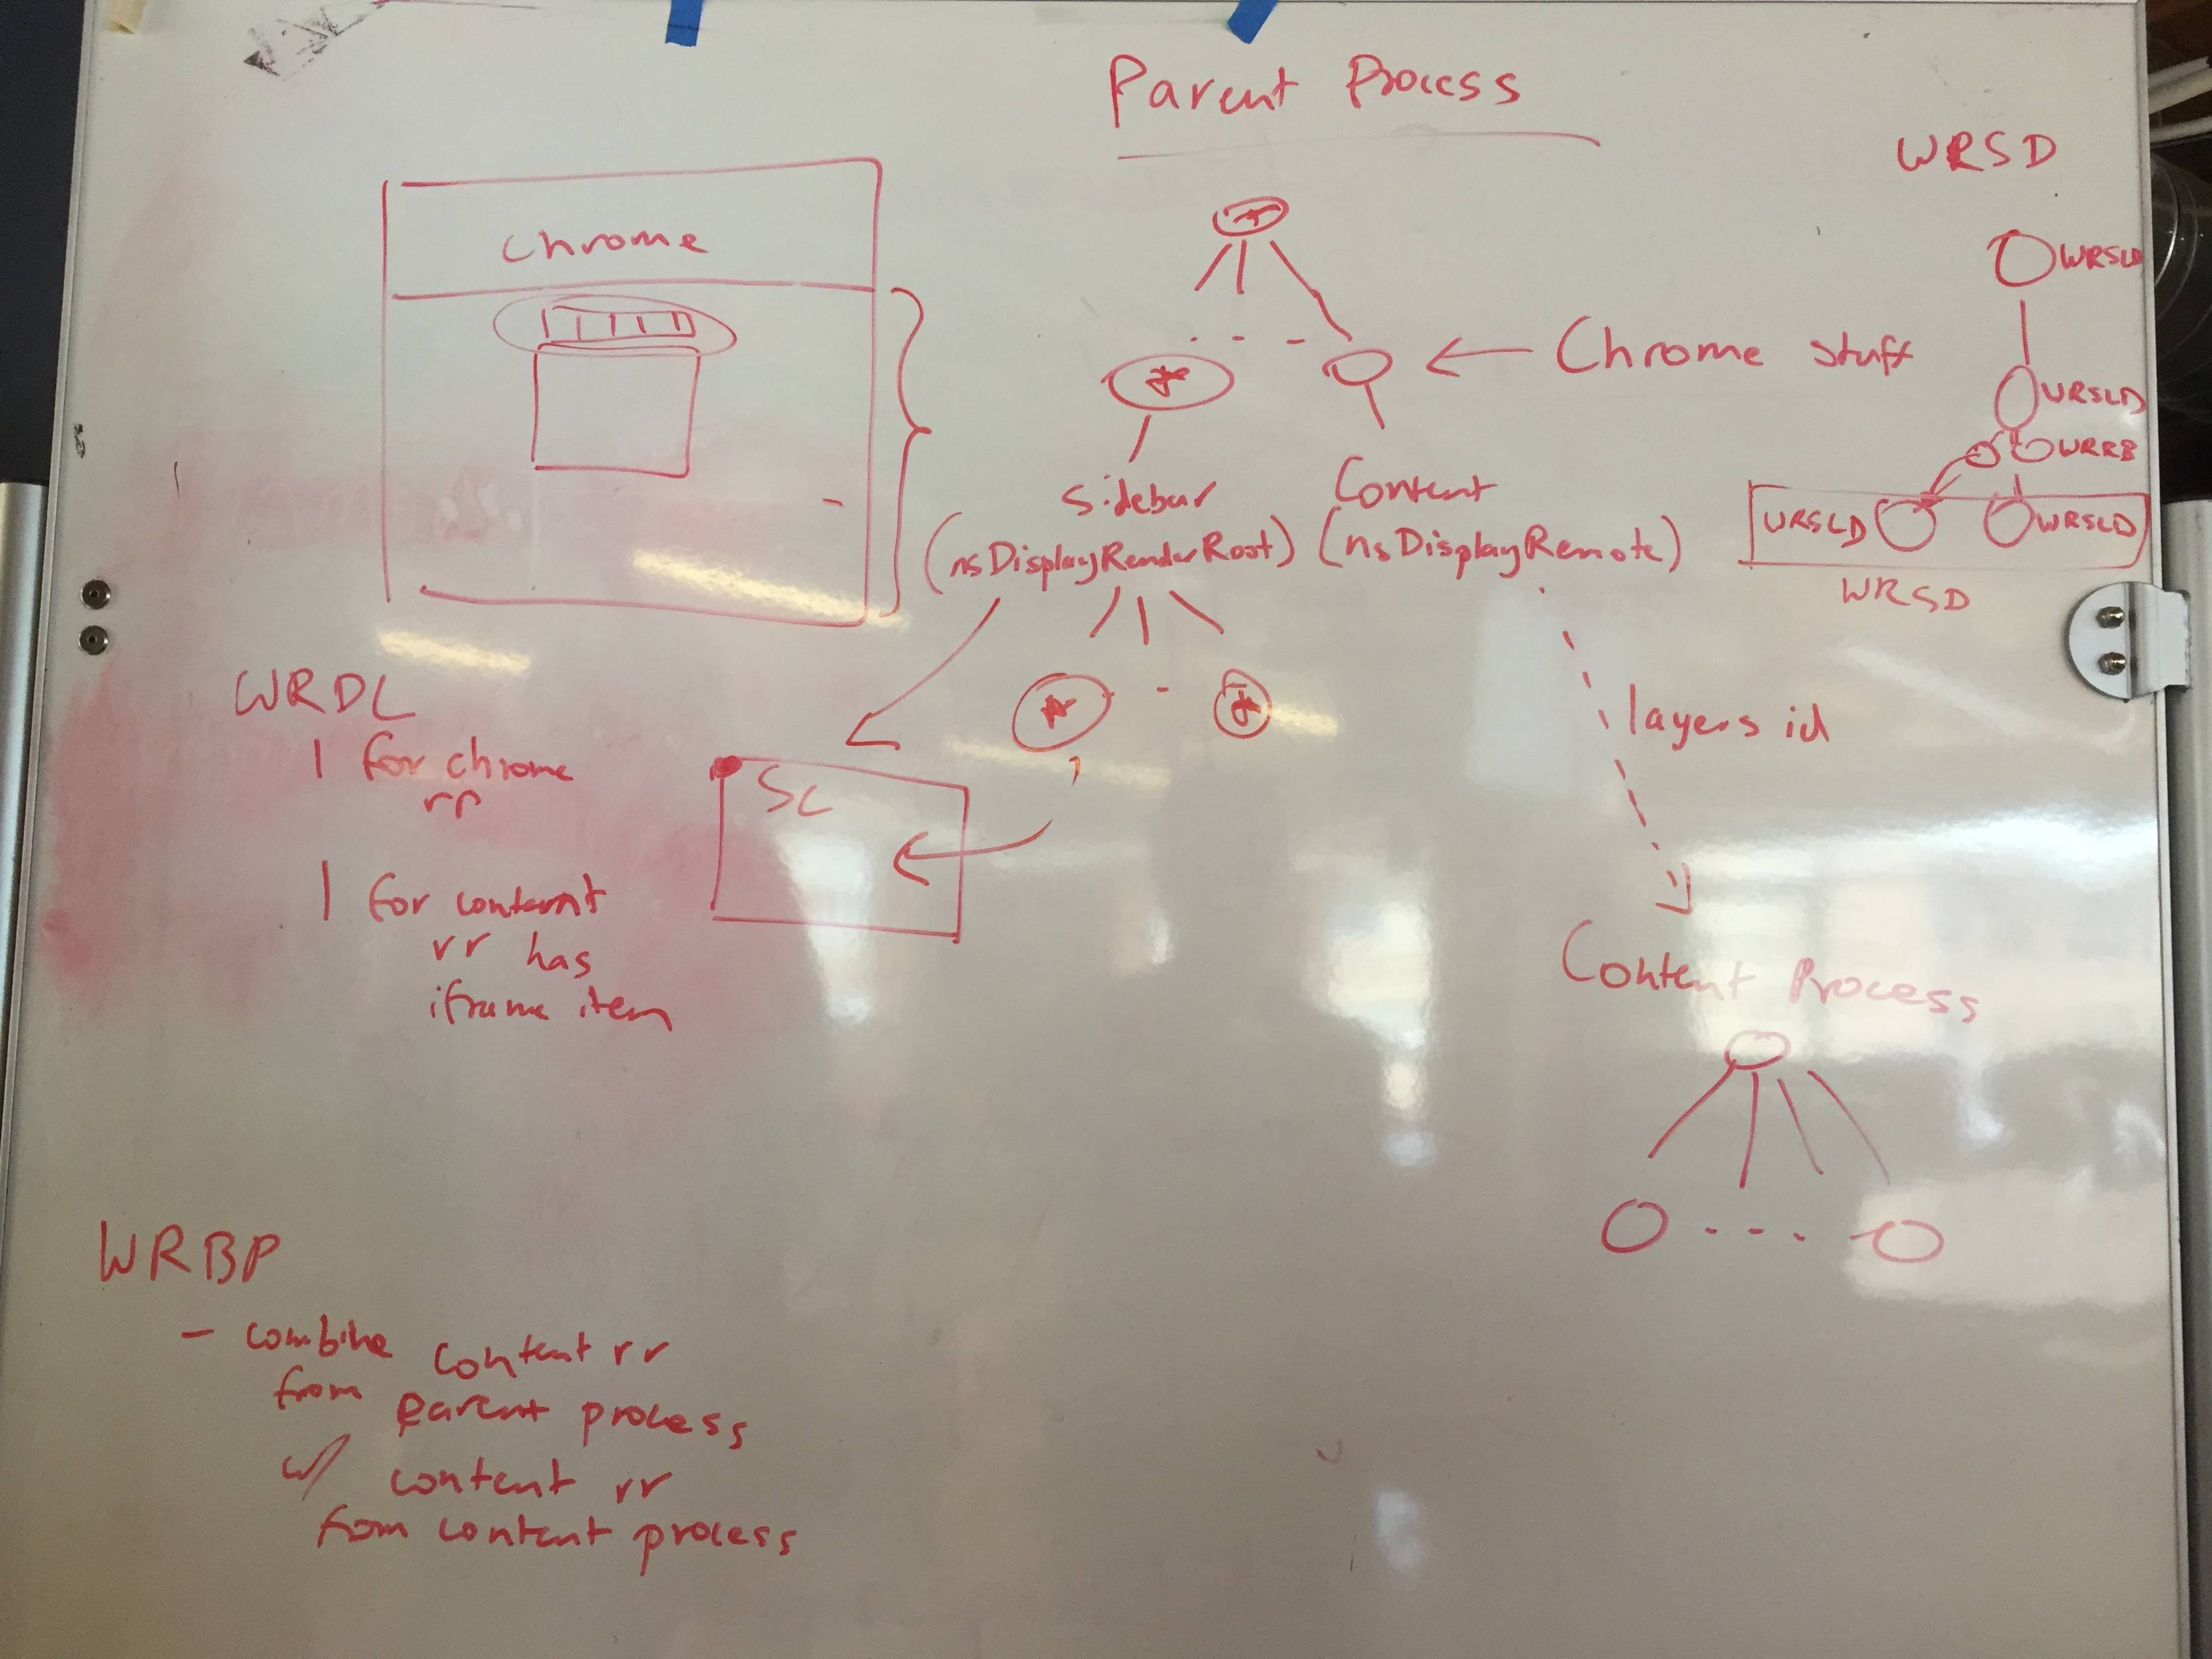 Parent Process
WRSD
Chrome
WRSLD
Chrome stuff
WRSLD
WRRB
Sidebar
(nsDisplayRenderRoot)
Content
(nsDisplayRemote)
WRSLD
WRSLD
WRSD
layers id
WRDL
1 for chrome
rr
SC
1 for content
rr has
iframe item
Content Process
WRBP
- combine content rr
from parent process
w/ content rr
from content process